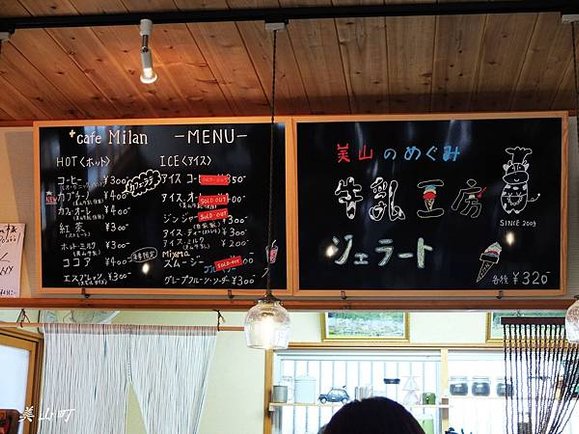 +cafe Milan -MENU-
HOT〈ホット〉
コーヒー ¥300
カプチーノ ¥400
カフェ・オーレ ¥400
紅茶 ¥300
ホット・ミルク ¥300
ココア ¥400
エスプレッソ ¥300
ICE〈アイス〉
SOLD OUT
アイス・オーレ
SOLD OUT
ジンジャー
SOLD OUT
アイス・ティー ¥300
アイス・ミルク ¥200
Mixture
スムージー
SOLD OUT
グレープフルーツ・ソーダ ¥300
美山のめぐみ
牛乳工房
ジェラート
SINCE 2009
各種 ¥320
美山町